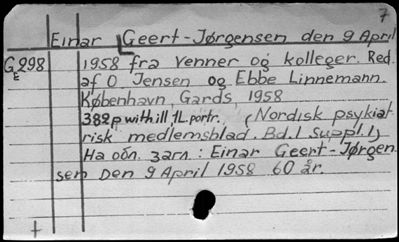 7
Einar Geert-Jørgensen den 9 April
G298 1958 fra venner og kolleger. Red.
E af O Jensen og Ebbe Linnemann.
København, Gards, 1958
382p with ill 1L. portr. (Nordisk psykiat-
risk medlemsblad. Bd. 1 Suppl. 1)
На обл. загл.: Einar Geert-Jørgen-
sen Den 9 April 1958 60 år.